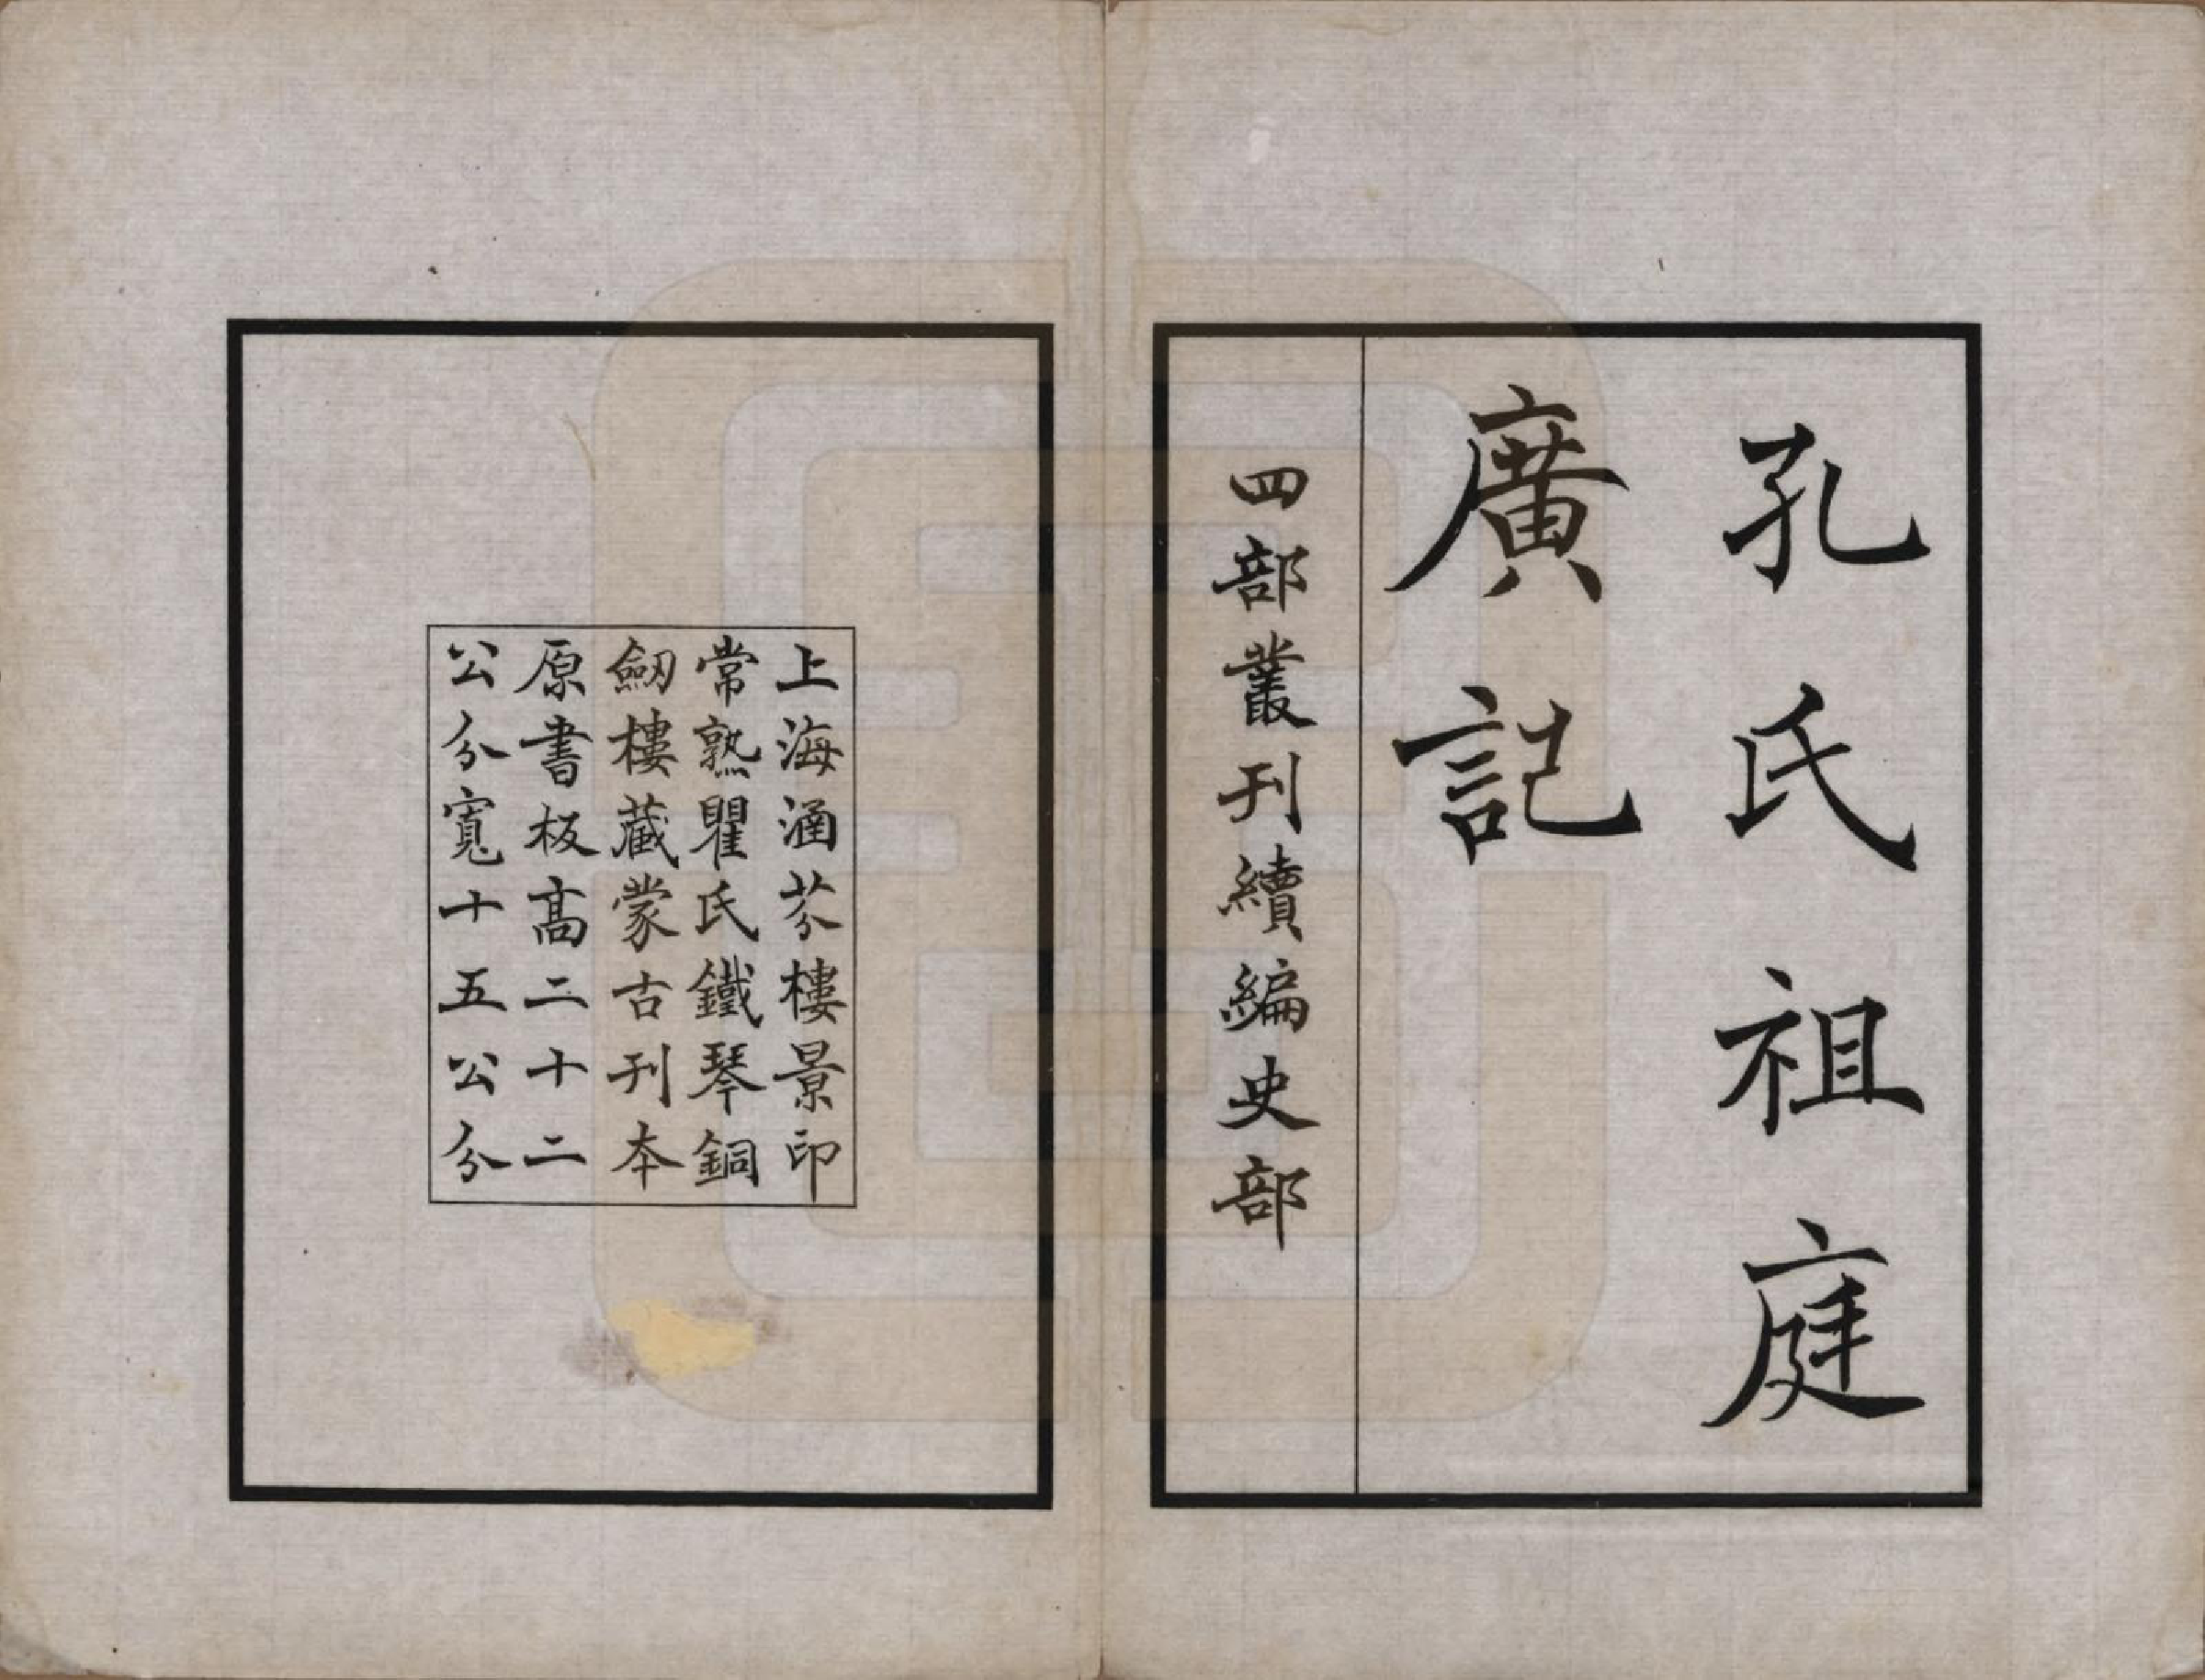 孔氏祖庭
廣記
四部叢刊續編史部
上海涵芬樓景印
常熟瞿氏鐵琴銅
劒樓藏蒙古刊本
原書板高二十二
公分寬十五公分